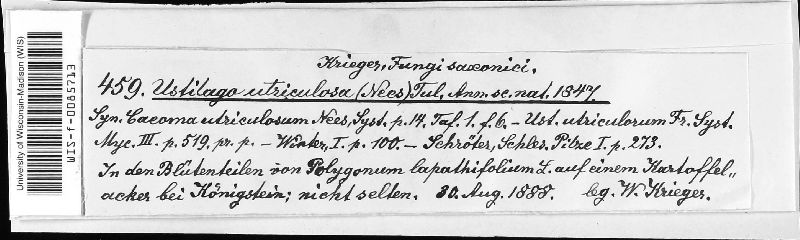 University of Wisconsin-Madison (WIS)
WIS-f-0085713
Krieger, Fungi saxonici.
459. Ustilago utriculosa (Nees) Tul. Ann. sc. nat. 1847.
Syn. Caeoma utriculosum Nees, Syst. p. 14, Taf. 1. f. 6. - Ust. utriculorum Fr. Syst.
Myc. III. p. 519, pr. p. - Winter, I. p. 100. - Schröter, Schles. Pilze I. p. 273.
In den Blütenteilen von Polygonum lapathifolium L. auf einem Kartoffel„
acker bei Königstein; nicht selten. 30. Aug. 1888. leg. W. Krieger.